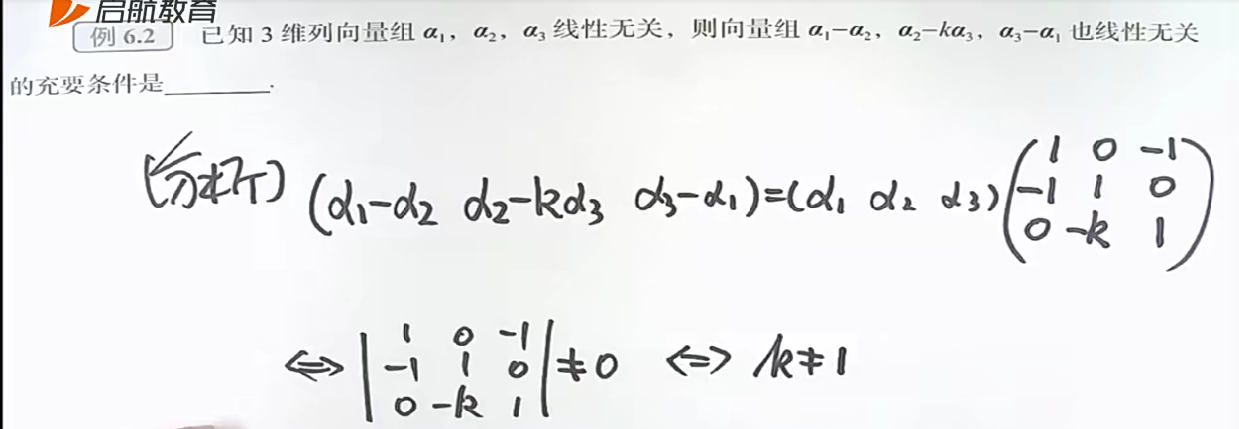 启航教育
例 6.2 已知 3 维列向量组 α₁，α₂，α₃ 线性无关，则向量组 α₁−α₂，α₂−kα₃，α₃−α₁ 也线性无关
的充要条件是________.
(分析) (α₁−α₂ α₂−kα₃ α₃−α₁)=(α₁ α₂ α₃)(1 0 −1
−1 1 0
0 −k 1)
⇔ |1 0 −1
−1 1 0
0 −k 1| ≠0 ⇔ k≠1